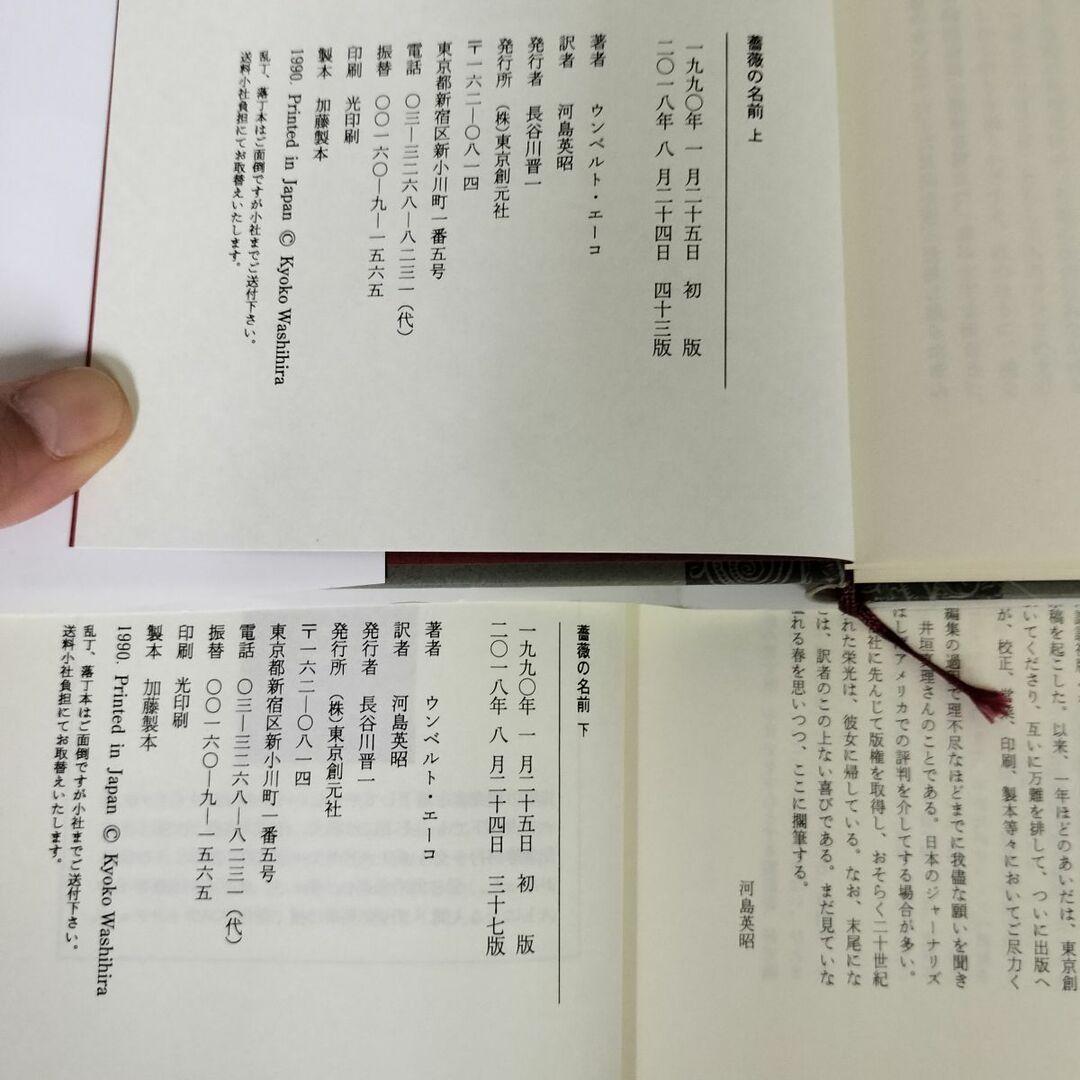 薔薇の名前 上
一九九〇年 一 月二十五日 初 版
二〇一八年 八 月二十四日 四十三版
著者 ウンベルト・エーコ
訳者 河島英昭
発行者 長谷川晋一
発行所 (株)東京創元社
〒一六二―〇八一四
東京都新宿区新小川町一番五号
電話 〇三―三二六八―八二三一(代)
振替 〇〇一六〇―九―一五六五
印刷 光印刷
製本 加藤製本
1990. Printed in Japan © Kyoko Washihira
乱丁、落丁本はご面倒ですが小社までご送付下さい。
送料小社負担にてお取替えいたします。
稿を起こした。以来、一年ほどのあいだは、東京創
いてくださり、互いに万難を排して、ついに出版へ
が、校正、営業、印刷、製本等々においてご尽力く
編集の過程で理不尽なほどまでに我儘な願いを聞き
井垣真理さんのことである。日本のジャーナリズ
はしばアメリカでの評判を介してする場合が多い。
社に先んじて版権を取得し、おそらく二十世紀
れた栄光は、彼女に帰している。なお、末尾にな
は、訳者のこの上ない喜びである。まだ見ていな
れる春を思いつつ、ここに擱筆する。
河島英昭
薔薇の名前 下
一九九〇年 一 月二十五日 初 版
二〇一八年 八 月二十四日 三十七版
著者 ウンベルト・エーコ
訳者 河島英昭
発行者 長谷川晋一
発行所 (株)東京創元社
〒一六二―〇八一四
東京都新宿区新小川町一番五号
電話 〇三―三二六八―八二三一(代)
振替 〇〇一六〇―九―一五六五
印刷 光印刷
製本 加藤製本
1990. Printed in Japan © Kyoko Washihira
乱丁、落丁本はご面倒ですが小社までご送付下さい。
送料小社負担にてお取替えいたします。